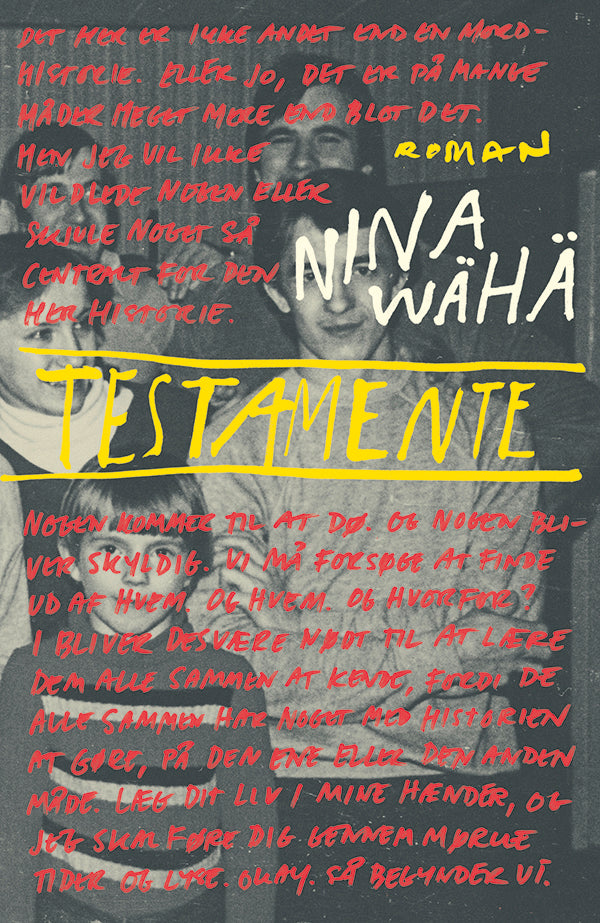 DET HER ER IKKE ANDET END EN MORD-
HISTORIE. ELLER JO, DET ER PÅ MANGE
MÅDER MEGET MERE END BLOT DET.
MEN JEG VIL IKKE
VILDLEDE NOGEN ELLER
SKJULE NOGET SÅ
CENTRALT FOR DEN
HER HISTORIE.
ROMAN
NINA
WÄHÄ
TESTAMENTE
NOGEN KOMMER TIL AT DØ. OG NOGEN BLI-
VER SKYLDIG. VI MÅ FORSØGE AT FINDE
UD AF HVEM. OG HVEM. OG HVORFOR?
I BLIVER DESVÆRE NØDT TIL AT LÆRE
DEM ALLE SAMMEN AT KENDE, FORDI DE
ALLE SAMMEN HAR NOGET MED HISTORIEN
AT GØRE, PÅ DEN ENE ELLER DEN ANDEN
MÅDE. LÆG DIT LIV I MINE HÆNDER, OG
JEG SKAL FØRE DIG GENNEM MØRKE
TIDER OG LYSE. OKAY. SÅ BEGYNDER VI.